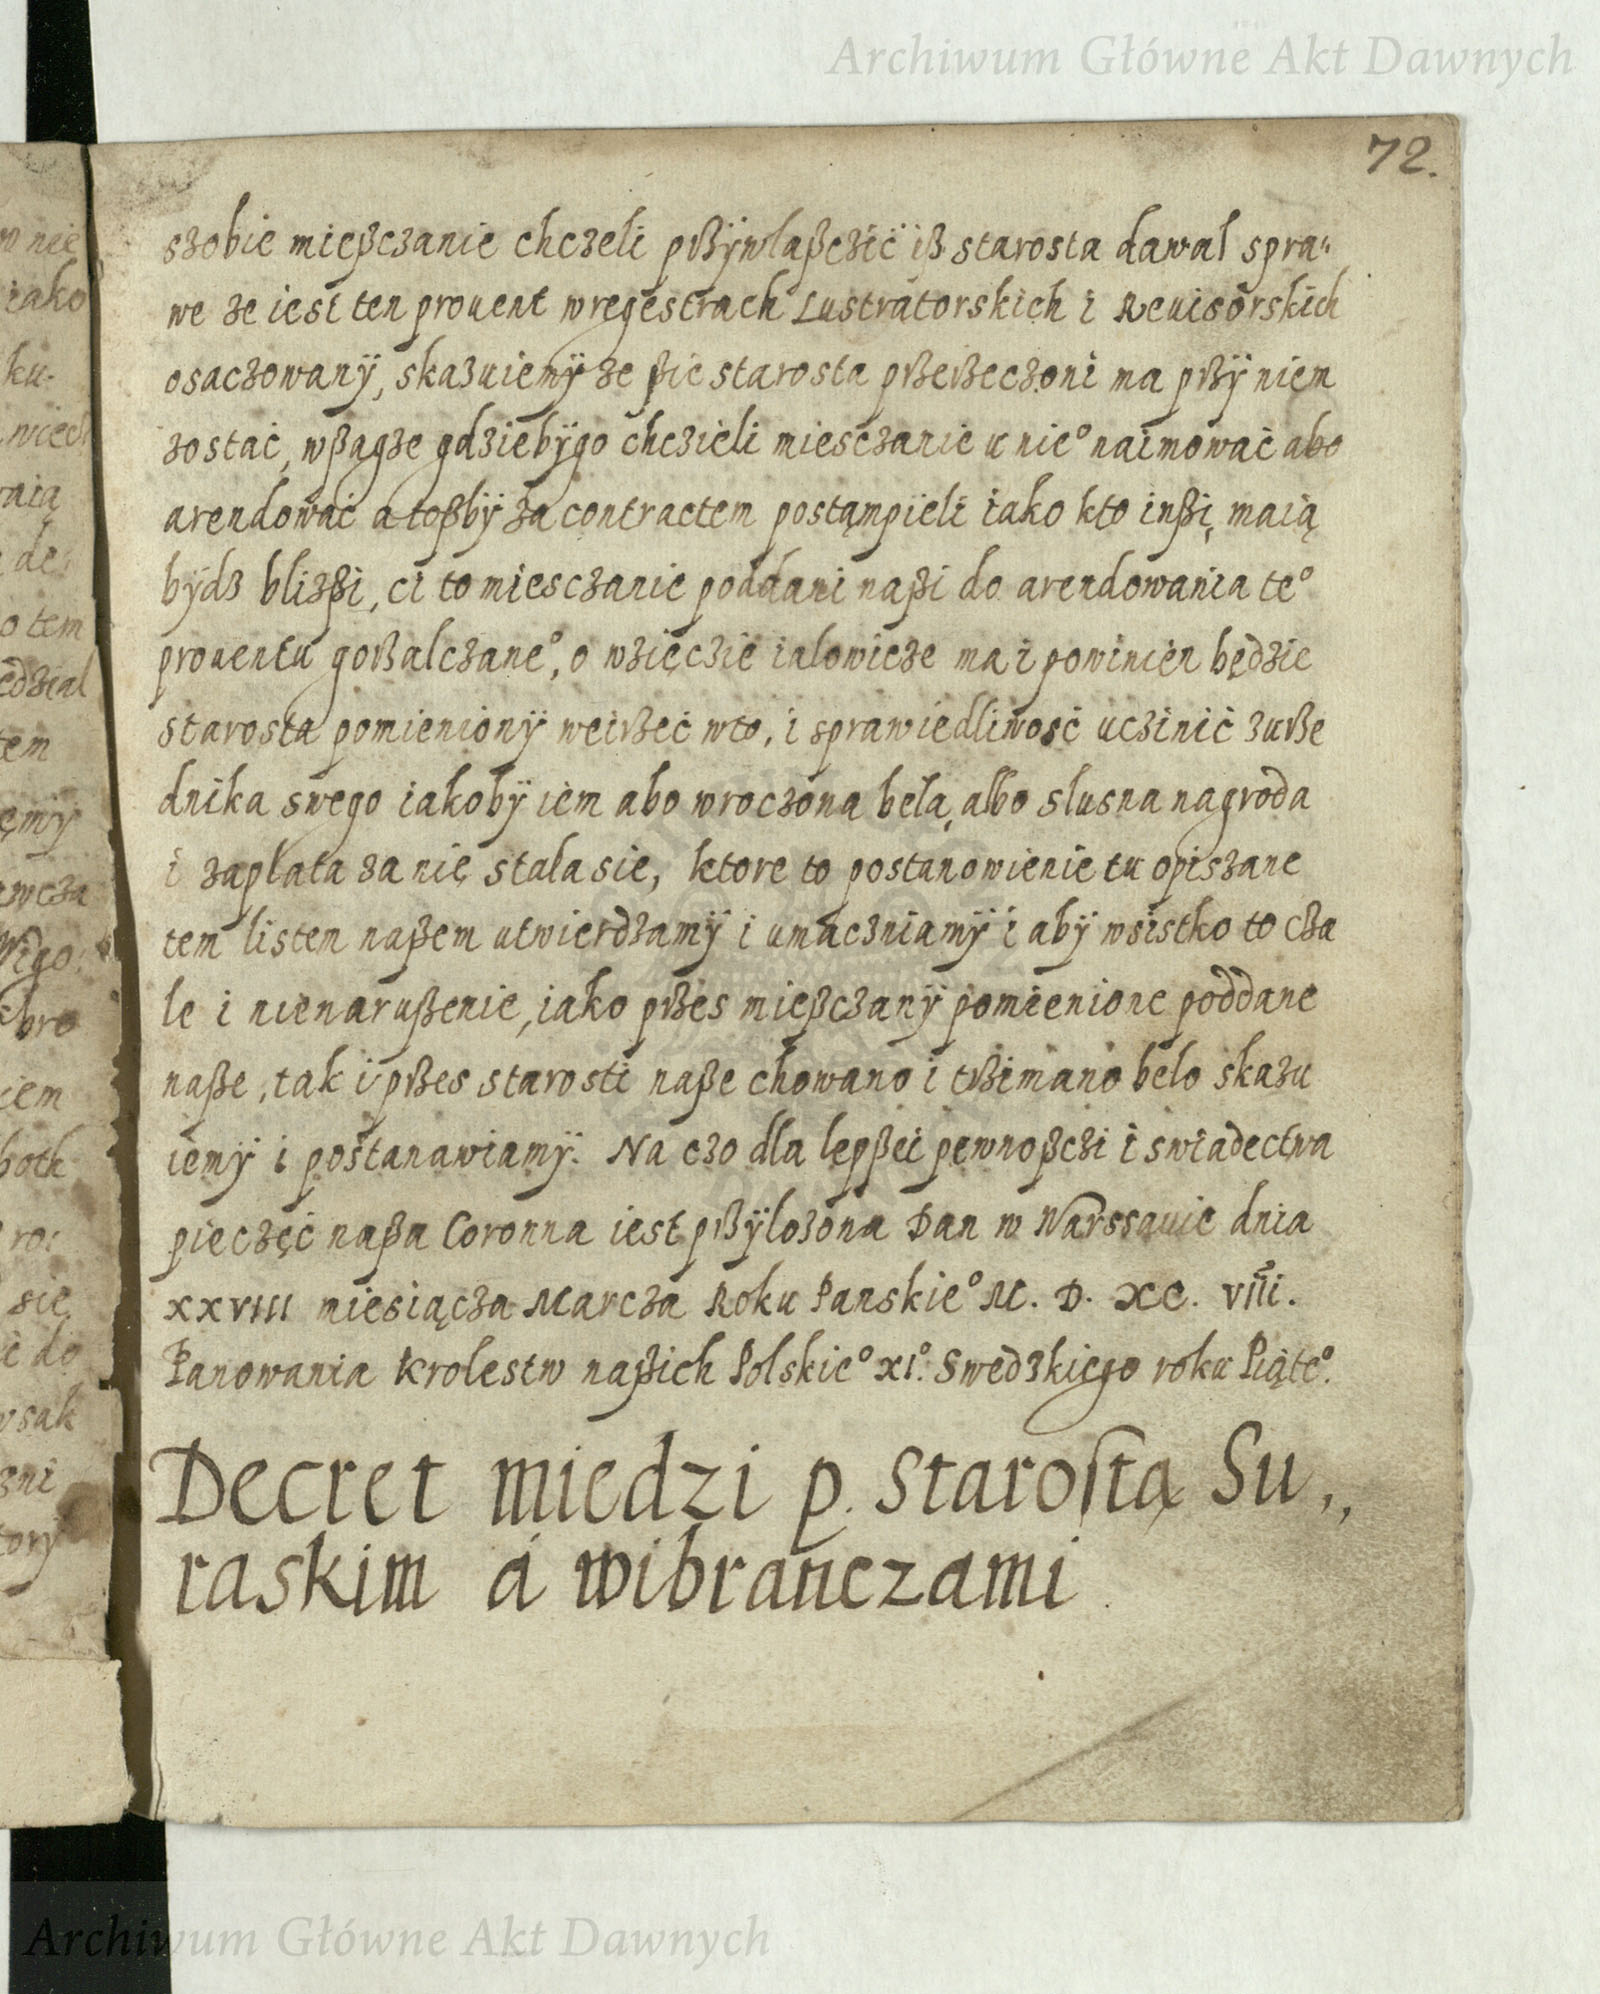 Archiwum Główne Akt Dawnych
72.
szobie mießczanie chczeli prßÿwlaßczić iß starosta dawal spra„
we ze iest ten prouent wregestrach Lustratorskich i Reuisorskich
osaczowanÿ, skazuiemÿ ze ßie starosta prßerßeczoni ma prßÿ niem
zostać, wßagze gdziebÿgo chczieli miesczanie u nie° naimować abo
arendować a toßbÿ za contractem postąmpieli iako kto inßi, maią
bÿdz blizßi, ci to miesczanie poddani naßi do arendowania te°
prouentu gorßalczane°, o wzięczie ialowicze ma i powinien będzie
starosta pomienionÿ weirßeć wto, i sprawiedliwość uczinić zurße
dnika swego iakobÿ iem abo wroczona beła, albo slusna nagroda
i zaplata za nię stala sie, ktore to postanowienie tu opiszane
tem listem naßem utwierdzamÿ i umaczniamÿ i abÿ wsistko to cza
le i nienarußenie, iako prßes mießczanÿ pomienione poddane
naße, tak i prßes starosti naße chowano i trßimano belo skazu
iemÿ i postanawiamÿ. Na czo dla lepßei pewnoßczi i swiadectwa
pieczęć naßa Coronna iest prßÿlozona Dan w Warssauie dnia
XXVIII miesiącza Marcza Roku Panskie° M. D. XC. VIII.
Panowania Krolestw naßich Polskie° XI.° Swedzkiego roku Piąte°.
Decret miedzi p. starostą Su„
raskim á wibrańczami
Archiwum Główne Akt Dawnych